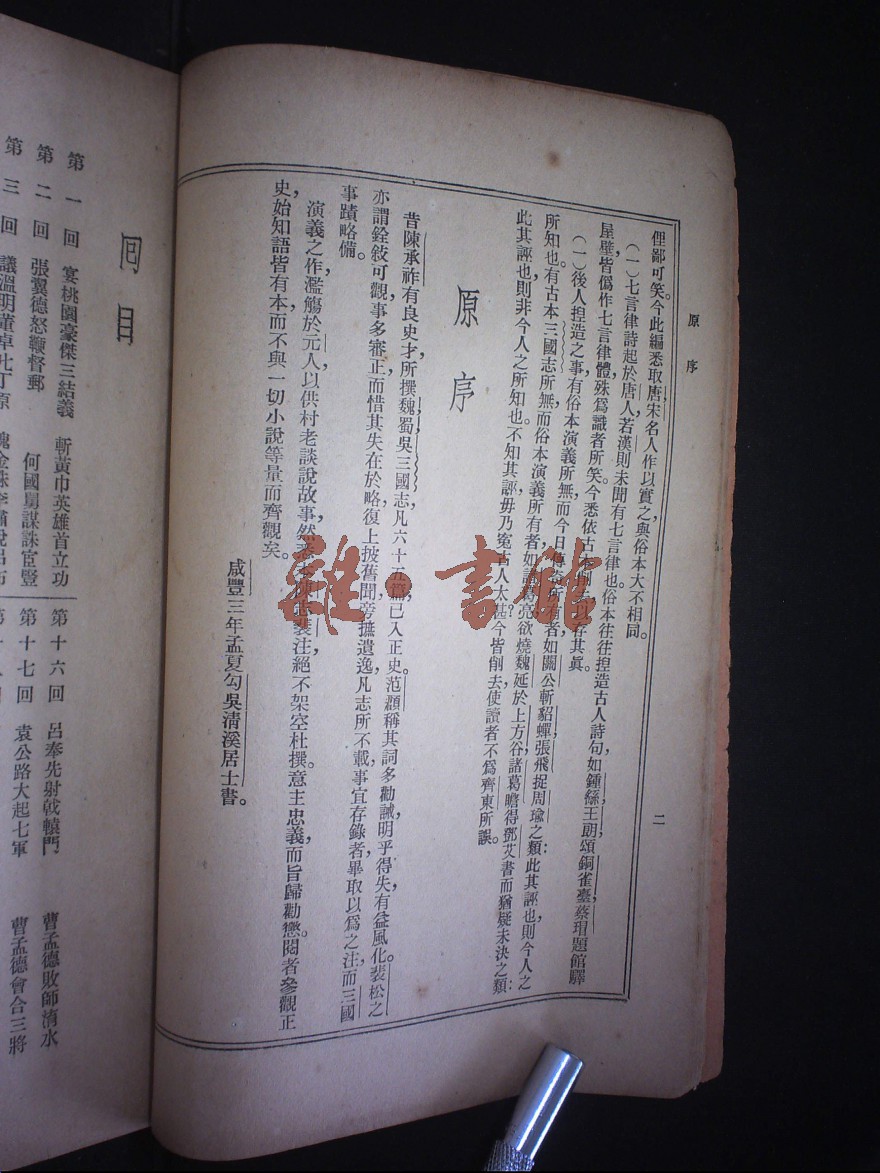 原序
二
俚鄙可笑。今此編悉取唐宋名人作以實之，與俗本大不相同。
（一）七言律詩起於唐人，若漢則未聞有七言律也。俗本往往捏造古人詩句，如鍾繇王朗頌銅雀臺，蔡瑁題館驛
屋壁，皆僞作七言律體，殊爲識者所笑。今悉依古本削去，以存其眞。
（一）後人捏造之事，有俗本演義所無，而今日傳奇所有者，如關公斬貂蟬，張飛捉周瑜之類：此其誣也，則今人之
所知也。有古本三國志所無，而俗本演義所有者，如諸葛亮欲燒魏延於上方谷，諸葛瞻得鄧艾書而猶疑未決之類：
此其誣也，則非今人之所知也。不知其誣，毋乃寃古人太甚？今皆削去，使讀者不爲齊東所誤。
原序
昔陳承祚有良史才，所撰魏蜀吳三國志，凡六十五篇，已入正史。范頵稱其詞多勸誡，明乎得失，有益風化。裴松之
亦謂銓敍可觀，事多審正，而惜其失在於略，復上披舊聞，旁摭遺逸，凡志所不載，事宜存錄者，畢取以爲之注，而三國
事蹟略備。
演義之作，濫觴於元人，以供村老談說故事，然悉本陳志裴注，絕不架空杜撰。意主忠義，而旨歸勸懲。閱者參觀正
史，始知語皆有本，而不與一切小說等量而齊觀矣。
咸豐三年孟夏勾吳清溪居士書。
回目
第一回 宴桃園豪傑三結義 斬黃巾英雄首立功
第二回 張翼德怒鞭督郵 何國舅謀誅宦豎
第三回 議溫明董卓叱丁原 餽金珠李肅說呂布
第十六回 呂奉先射戟轅門 曹孟德敗師淯水
第十七回 袁公路大起七軍 曹孟德會合三將
雜·書館